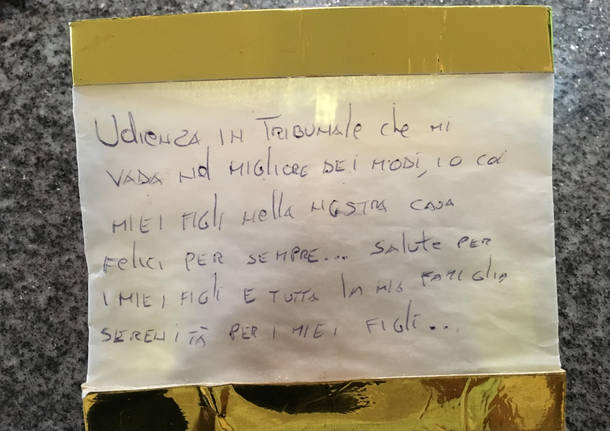 Udienza in Tribunale che mi
vada nel migliore dei modi, io coi
miei figli nella nostra casa
felici per sempre... salute per
i miei figli e tutta la mia famiglia
serenità per i miei figli...